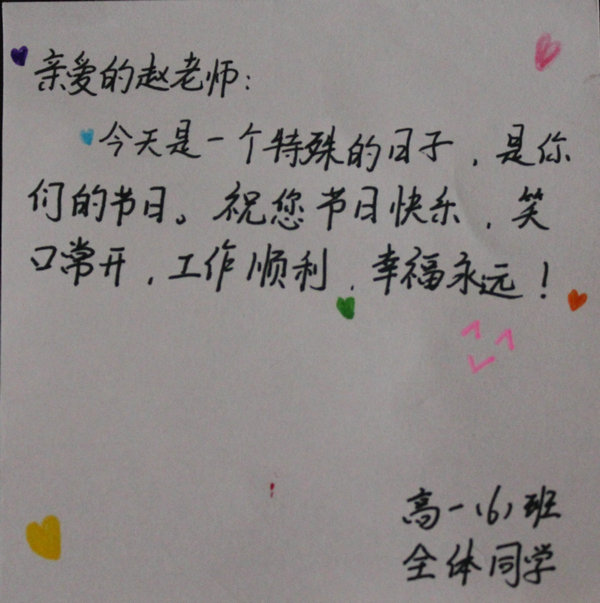 亲爱的赵老师：
今天是一个特殊的日子，是你
们的节日。祝您节日快乐，笑
口常开，工作顺利，幸福永远！
高一（6）班
全体同学